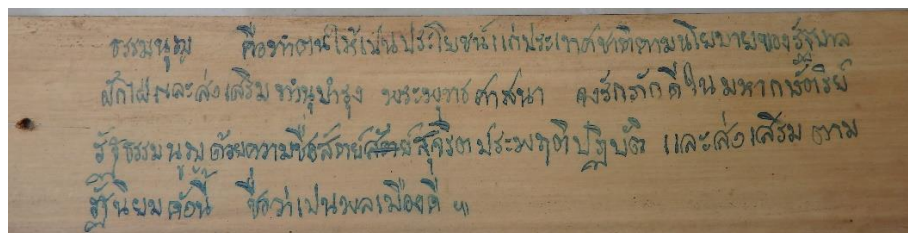 ธรรมนูญ คือทำตนให้เป็นประโยชน์แก่ประเทศชาติตามนโยบายของรัฐบาล
ฝักใฝ่และส่งเสริมทำนุบำรุง พระพุทธศาสนา จงรักภักดีในมหากษัตริย์
รัฐธรรมนูญด้วยความซื่อสัตย์สุจริตประพฤติปฏิบัติ และส่งเสริมตาม
รัฐนิยมดังนี้ ชื่อว่าเปนพลเมืองดี ๚